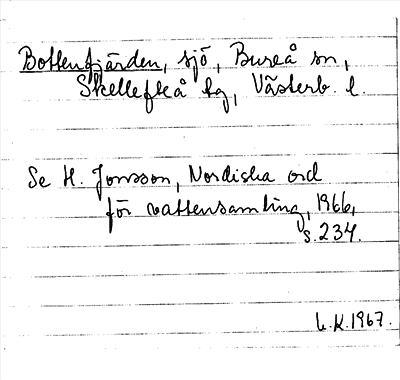 Bottenfjärden, sjö, Bureå sn,
Skellefteå lg, Västerb. l.
Se H. Jonsson, Nordiska ord
för vattensamling, 1966,
s. 234.
L.K. 1967.